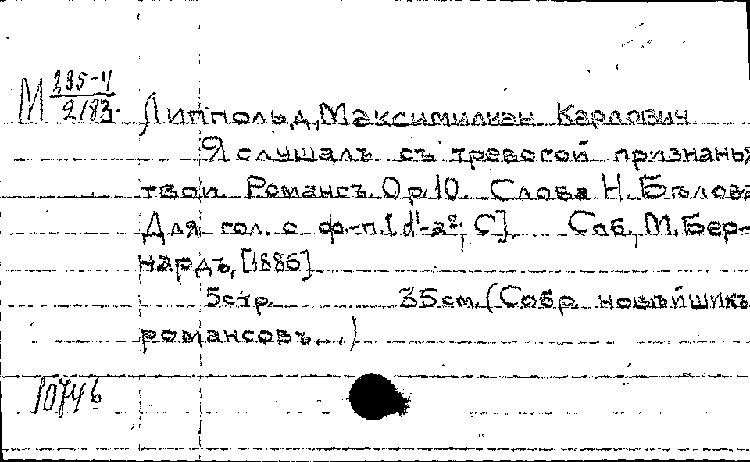 М 195-11
2183.
Липпольд, Максимилиан Карлович
Я слушалъ съ тревогой признанья
твои. Романсъ. Op.10. Слова Н. Бѣлова
Для гол. с ф.-п.[d¹-a², C]. Спб., М. Бер-
нардъ, [1885]
5стр. 35см. (Собр. новѣйшихъ
романсовъ...)